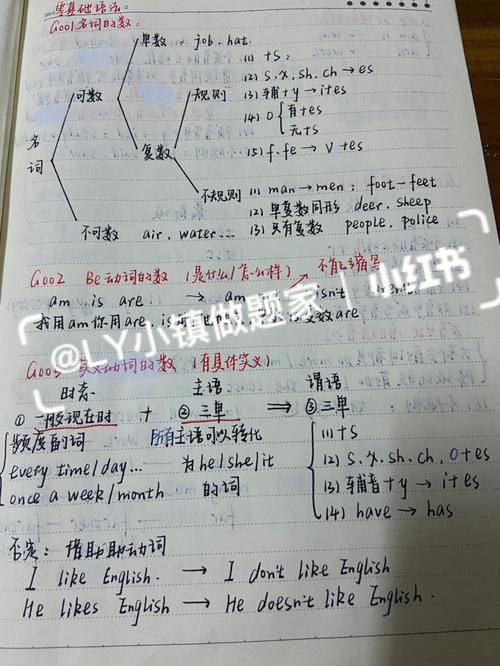 零基础语法:
G001 名词的数:
单数 job. hat.
(1) +s:
(2) s. x. sh. ch → es
可数 规则 (3) 辅+y → i+es
(4) o { 有+es
无+s
名词 复数
(5) f. fe → v+es
不规则 (1) man → men ; foot-feet
(2) 单复数同形 deer. sheep
不可数 air. water... (3) 只有复数 people. police
G002 Be动词的数 (是什么/怎么样) 不能缩写
am is are → am isn't
我用am你用are, is 复数are.
G003 实义动词的数 (有具体实义)
时态 主语 谓语
① 一般现在时 + ② 三单 ⇒ ③ 三单
频度副词 所有主语可以转化 (1) +s
every time/day... 为he/she/it (2) s. x. sh. ch. o+es
once a week/month 的词 (3) 辅音+y → i+es
(4) have → has
否定: 借助助动词
I like English. → I don't like English
He likes English → He doesn't like English.
@LY小镇做题家 | 小红书